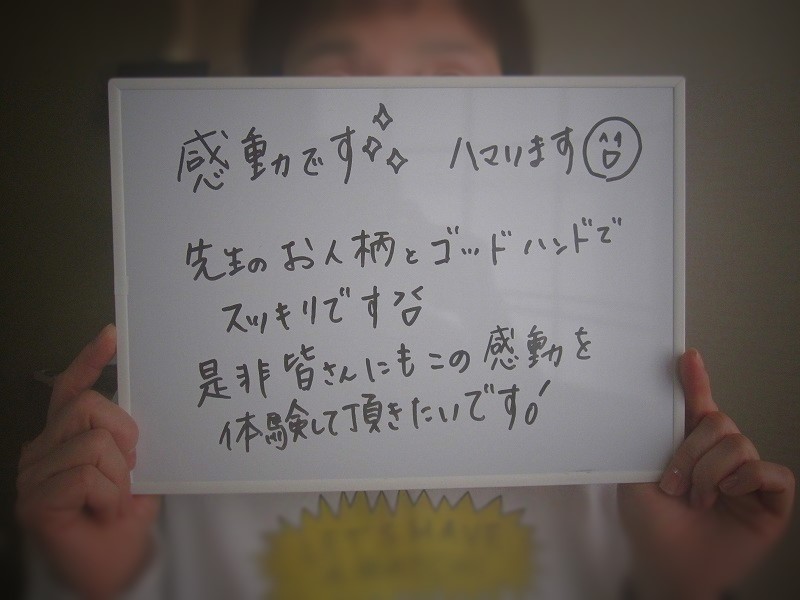 感動です ハマります
先生のお人柄とゴッドハンドで
スッキリです
是非皆さんにもこの感動を
体験して頂きたいです!
LET'S HAVE